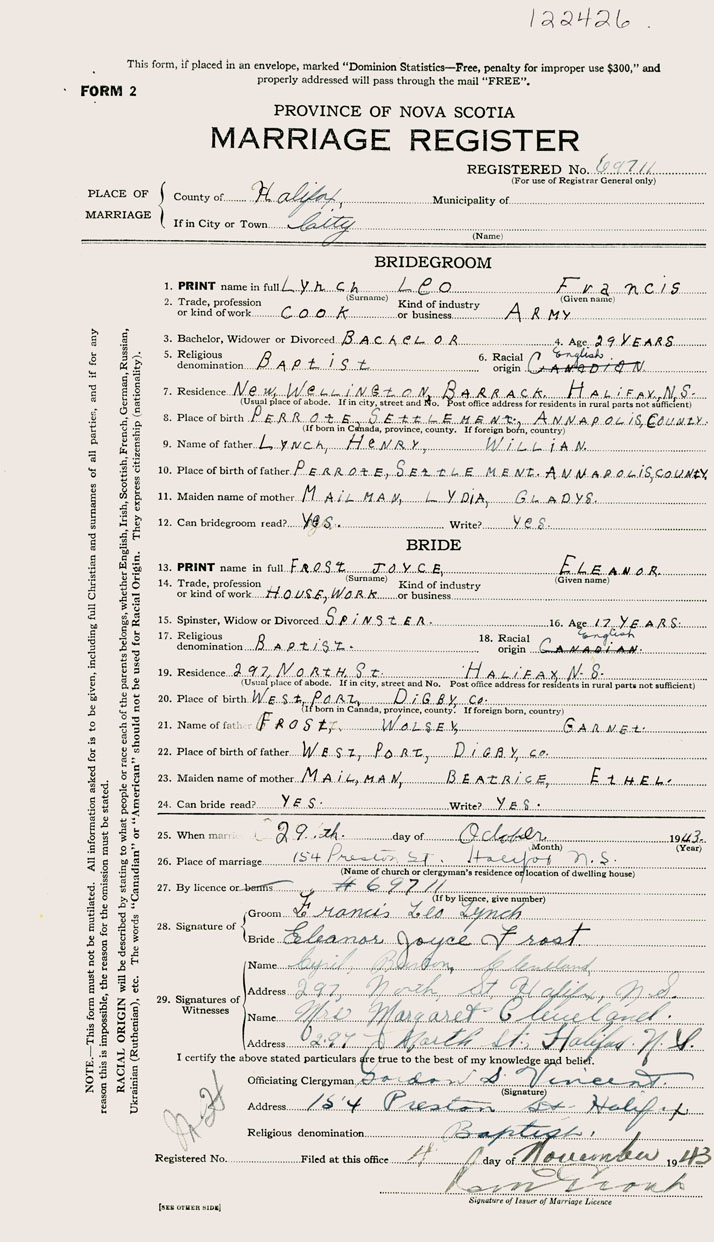 122426.
This form, if placed in an envelope, marked "Dominion Statistics—Free, penalty for improper use $300," and
properly addressed will pass through the mail "FREE".
FORM 2
PROVINCE OF NOVA SCOTIA
MARRIAGE REGISTER
REGISTERED No. 69711
(For use of Registrar General only)
PLACE OF MARRIAGE
County of Halifax, Municipality of
If in City or Town City
(Name)
BRIDEGROOM
1. PRINT name in full Lynch Leo Francis
(Surname) (Given name)
2. Trade, profession or kind of work COOK Kind of industry or business ARMY
3. Bachelor, Widower or Divorced BACHELOR 4. Age 29 YEARS
5. Religious denomination BAPTIST 6. Racial origin CANADIAN English
7. Residence NEW, WELLINGTON, BARRACK. HALIFAX, N.S.
(Usual place of abode. If in city, street and No. Post office address for residents in rural parts not sufficient)
8. Place of birth PERROTE, SETTLEMENT, ANNAPOLIS, COUNTY.
(If born in Canada, province, county. If foreign born, country)
9. Name of father LYNCH, HENRY, WILLIAN.
10. Place of birth of father PERROTE, SETTLE MENT. ANNAPOLIS, COUNTY
11. Maiden name of mother MAILMAN, LYDIA, GLADYS.
12. Can bridegroom read? Yes. Write? Yes.
BRIDE
13. PRINT name in full FROST JOYCE, ELEANOR
(Surname) (Given name)
14. Trade, profession or kind of work HOUSE, WORK Kind of industry or business
15. Spinster, Widow or Divorced SPINSTER. 16. Age 17 YEARS.
17. Religious denomination BAPTIST. 18. Racial origin CANADIAN. English
19. Residence 297, NORTH, St. HALIFAX, N.S.
(Usual place of abode. If in city, street and No. Post office address for residents in rural parts not sufficient)
20. Place of birth WEST, PORT, DIGBY, CO.
(If born in Canada, province, county. If foreign born, country)
21. Name of father FROST, WOLSEY, GARNET.
22. Place of birth of father WEST, PORT, DIGBY, CO.
23. Maiden name of mother MAIL, MAN, BEATRICE, ETHEL.
24. Can bride read? YES. Write? YES.
25. When married 29.th. day of October 1943.
(Month) (Year)
26. Place of marriage 154 Preston St. Halifax N.S.
(Name of church or clergyman's residence or location of dwelling house)
27. By licence or banns # 69711
(If by licence, give number)
28. Signature of
Groom Francis Leo Lynch
Bride Eleanor Joyce Frost
29. Signatures of Witnesses
Name Cyril, Cleveland,
Address 297, North, St, Halifax, N.S.
Name Mrs Margaret Cleveland.
Address 297 North St. Halifax. N.S.
I certify the above stated particulars are true to the best of my knowledge and belief.
Officiating Clergyman Gordon S. Vincent.
(Signature)
Address 154 Preston St. Halifax
Religious denomination Baptist.
Registered No. Filed at this office 4 day of November 1943
Signature of Issuer of Marriage Licence
[SEE OTHER SIDE]
NOTE.—This form must not be mutilated. All information asked for is to be given, including full Christian and surnames of all parties, and if for any
reason this is impossible, the reason for the omission must be stated.
RACIAL ORIGIN will be described by stating to what people or race each of the parents belongs, whether English, Irish, Scottish, French, German, Russian,
Ukrainian (Ruthenian), etc. The words "Canadian" or "American" should not be used for Racial Origin. They express citizenship (nationality).